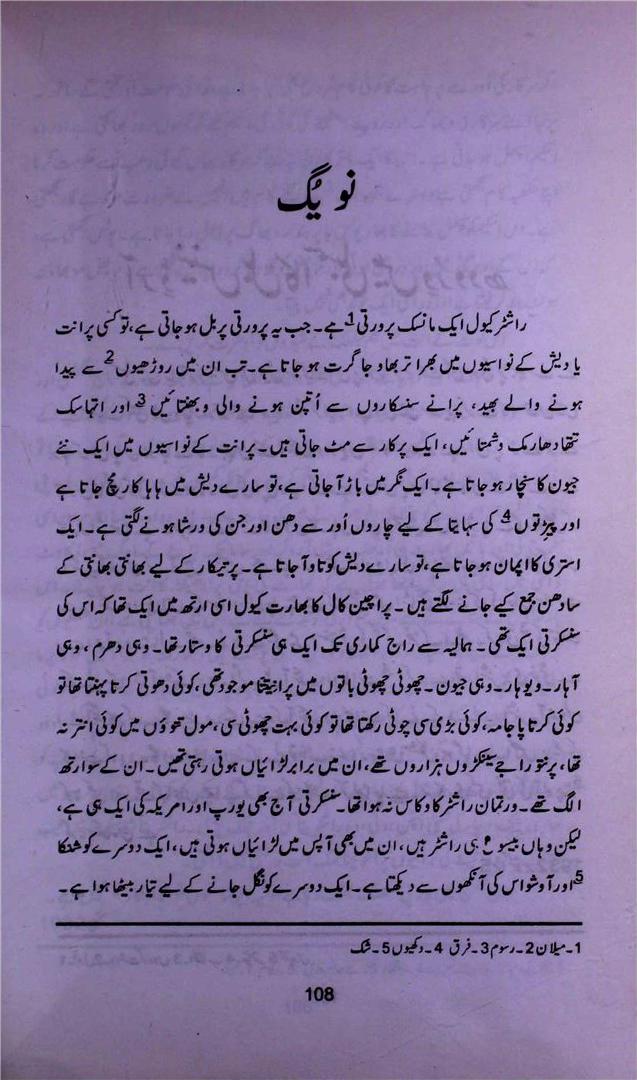 نو یُگ
راشٹر کیول ایک مانسک پرورتی1 ہے۔ جب یہ پرورتی پربل ہو جاتی ہے، تو کسی پرانت
یا دیش کے نواسیوں میں بھراتر بھاو جاگرت ہو جاتا ہے۔ تب ان میں روڑھیوں2 سے پیدا
ہونے والے بھید، پرانے سنسکاروں سے اُتپن ہونے والی وبھنتائیں3 اور اتہاسک
تتھا دھارمک وشمتائیں، ایک پرکار سے مٹ جاتی ہیں۔ پرانت کے نواسیوں میں ایک نئے
جیون کا سنچار ہو جاتا ہے۔ ایک نگر میں باڑ آجاتی ہے، تو سارے دیش میں ہاہاکار مچ جاتا ہے
اور پیڑتوں4 کی سہایتا کے لیے چاروں اُور سے دھن اور جن کی ورشا ہونے لگتی ہے۔ ایک
استری کا اپمان ہو جاتا ہے، تو سارے دیش کو تاو آجاتا ہے۔ پرتیکار کے لیے بھانتی بھانتی کے
سادھن جمع کیے جانے لگتے ہیں۔ پراچین کال کا بھارت کیول اسی ارتھ میں ایک تھا کہ اس کی
سنسکرتی ایک تھی۔ ہمالیہ سے راج کماری تک ایک ہی سنسکرتی کا وستار تھا۔ وہی دھرم، وہی
آہار۔ ویوہار۔ وہی جیون۔ چھوٹی چھوٹی باتوں میں پرانیتا موجود تھی، کوئی دھوتی کرتا پہنتا تھا تو
کوئی کرتا پاجامہ، کوئی بڑی سی چوٹی رکھتا تھا تو کوئی بہت چھوٹی سی، مول تتوؤں میں کوئی انتر نہ
تھا، پرنتو راجے سینکڑوں ہزاروں تھے، ان میں برابر لڑائیاں ہوتی رہتی تھیں۔ ان کے سوارتھ
الگ تھے۔ ورتمان راشٹر کا وکاس نہ ہوا تھا۔ سنسکرتی آج بھی یورپ اور امریکہ کی ایک ہی ہے،
لیکن وہاں بیسوں ہی راشٹر ہیں، ان میں بھی آپس میں لڑائیاں ہوتی ہیں، ایک دوسرے کو شنکا
5اور آوشواس کی آنکھوں سے دیکھتا ہے۔ ایک دوسرے کو نگل جانے کے لیے تیار بیٹھا ہوا ہے۔
1۔ میلان 2۔ رسوم 3۔ فرق 4۔ دکھیوں 5۔ شک
108